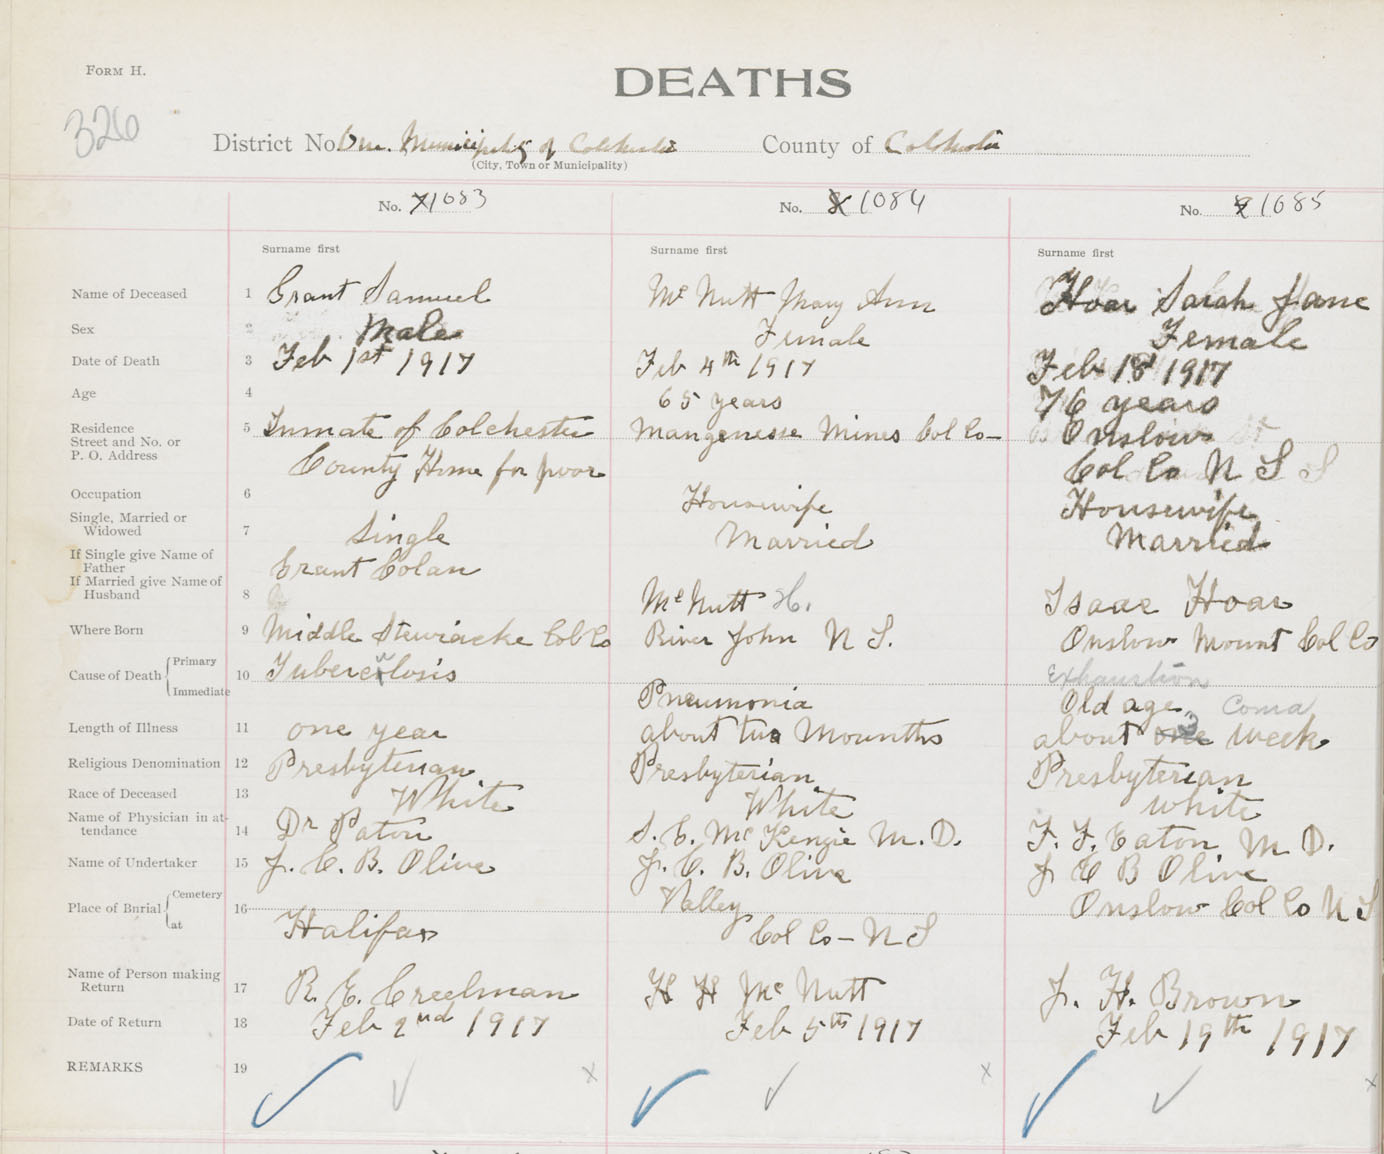 Form H.
DEATHS
326
District No. One. Municipality of Colchester County of Colchester
(City, Town or Municipality)
No. 7 1083 No. 8 1084 No. 9 1085
Surname first Surname first Surname first
Name of Deceased 1 Grant Samuel Mc Nutt Mary Ann Hoar Sarah Jane
Sex 2 Male Female Female
Date of Death 3 Feb 1st 1917 Feb 4th 1917 Feb 18 1917
Age 4 65 years 76 years
Residence
Street and No. or
P. O. Address
5 Inmate of Colchester Mangenesse Mines Col Co– Onslow
County Home for poor Col Co N S
Occupation 6 Housewife Housewife
Single, Married or
Widowed
7 Single Married Married
If Single give Name of
Father
Grant Colan
If Married give Name of
Husband
8 Mc Nutt H. Isaac Hoar
Where Born 9 Middle Stewiacke Col Co River John N S. Onslow Mount Col Co
Cause of Death { Primary
Immediate
10 Tuberculosis Exhaustion
Pneumonia Old age Coma
Length of Illness 11 one year about two Mounths about one 3 week
Religious Denomination 12 Presbyterian Presbyterian Presbyterian
Race of Deceased 13 White White White
Name of Physician in at-
tendance
14 Dr Paton S. E. Mc Kengie M. D. F. F. Eaton M D.
Name of Undertaker 15 J. C. B. Olive J. C. B. Olive J C B Olive
Place of Burial { Cemetery
at
16 Valley Onslow Col Co N S
Halifax Col Co – N S
Name of Person making
Return
17 R. E. Creelman H H Mc Nutt J. H. Brown
Date of Return 18 Feb 2nd 1917 Feb 5th 1917 Feb 19th 1917
REMARKS 19 x x x